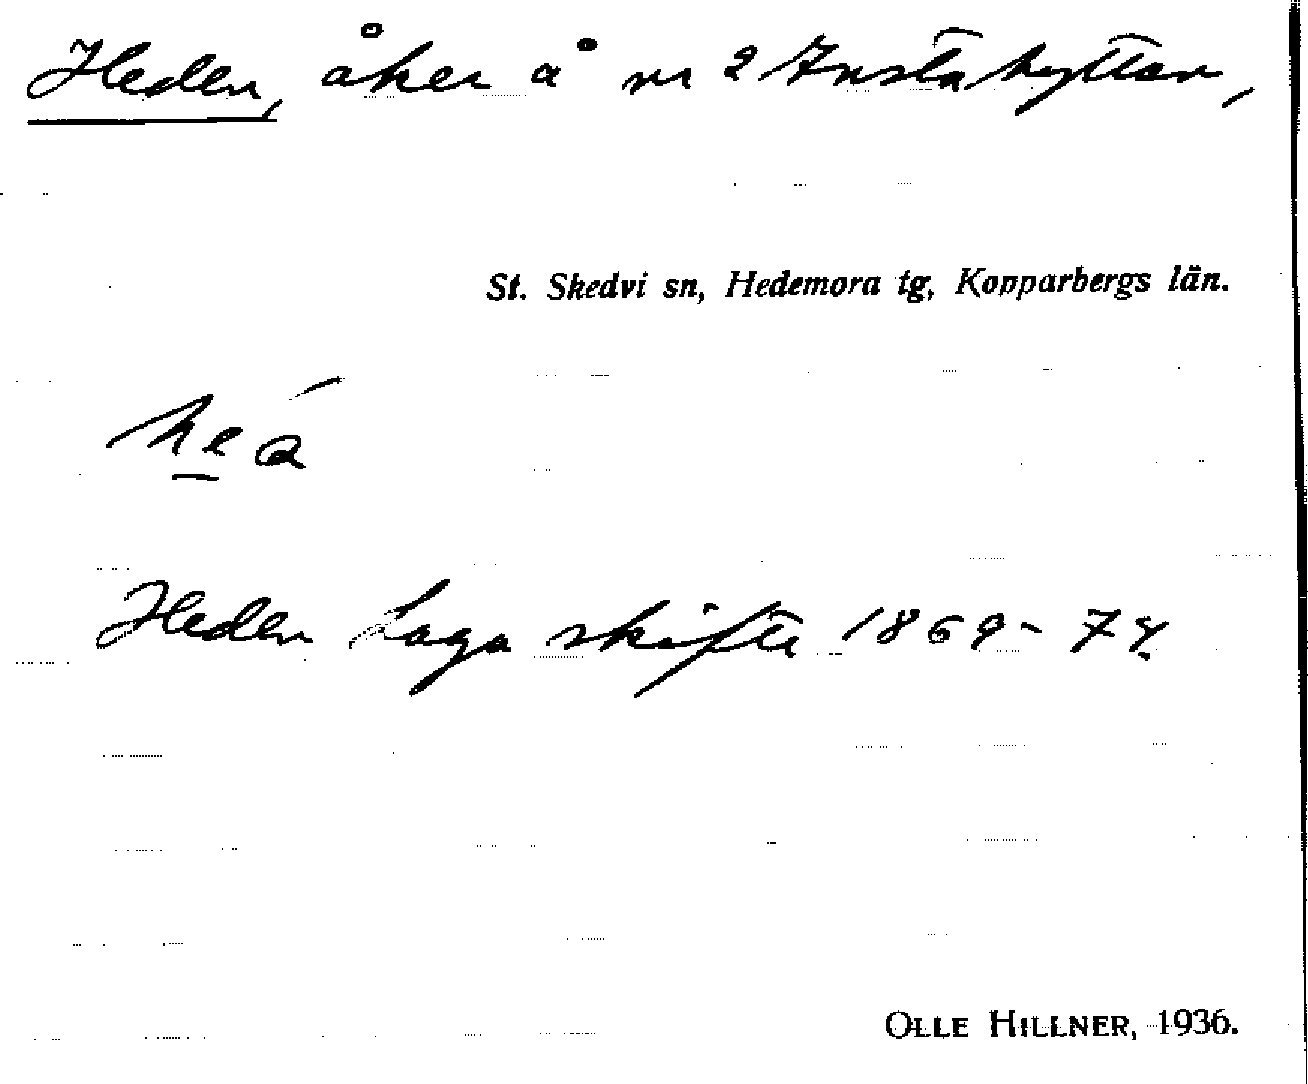 Heden, åker å nr 2 Instahyttan,
St. Skedvi sn, Hedemora tg, Kopparbergs län.
Heden Laga skifte 1869-74
OLLE HILLNER, 1936.